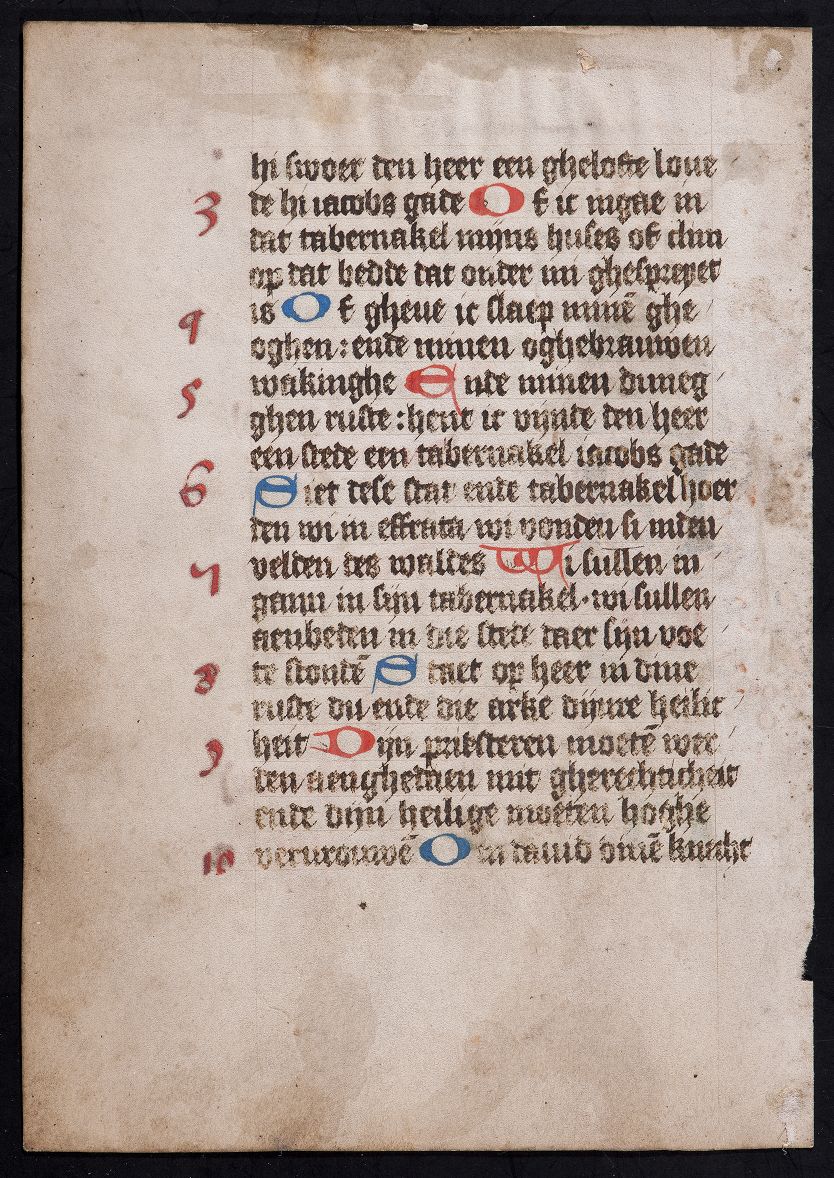 hi swoer den heer een ghelofte loue
3 de hi iacobs gade Of ic ingae in
dat tabernakel mijns huses of clim
op dat bedde dat onder mi ghespreyet
4 is Of gheue ic slaep minē ghe
oghen : ende minen oghebrauwen
5 wakinghe Ende minen dunneg
ghen ruste : hent ic vijnde den heer
een stede een tabernakel iacobs gade
6 Siet dese stat ende tabernakel hoer
den wi in effrata wi vonden si inden
7 velden des waldes Wi sullen in
gaan in sijn tabernakel · wi sullen
aenbeden in die stede daer sijn voe
8 te stondē Staet op heer in dine
ruste du ende die arke dijnre heilic
9 heit Dijn priesteren moetē wer
den aenghedaen mit gherechticheit
ende dijn heilige moeten hoghe
10 vervrouwē Om dauid dinē knecht